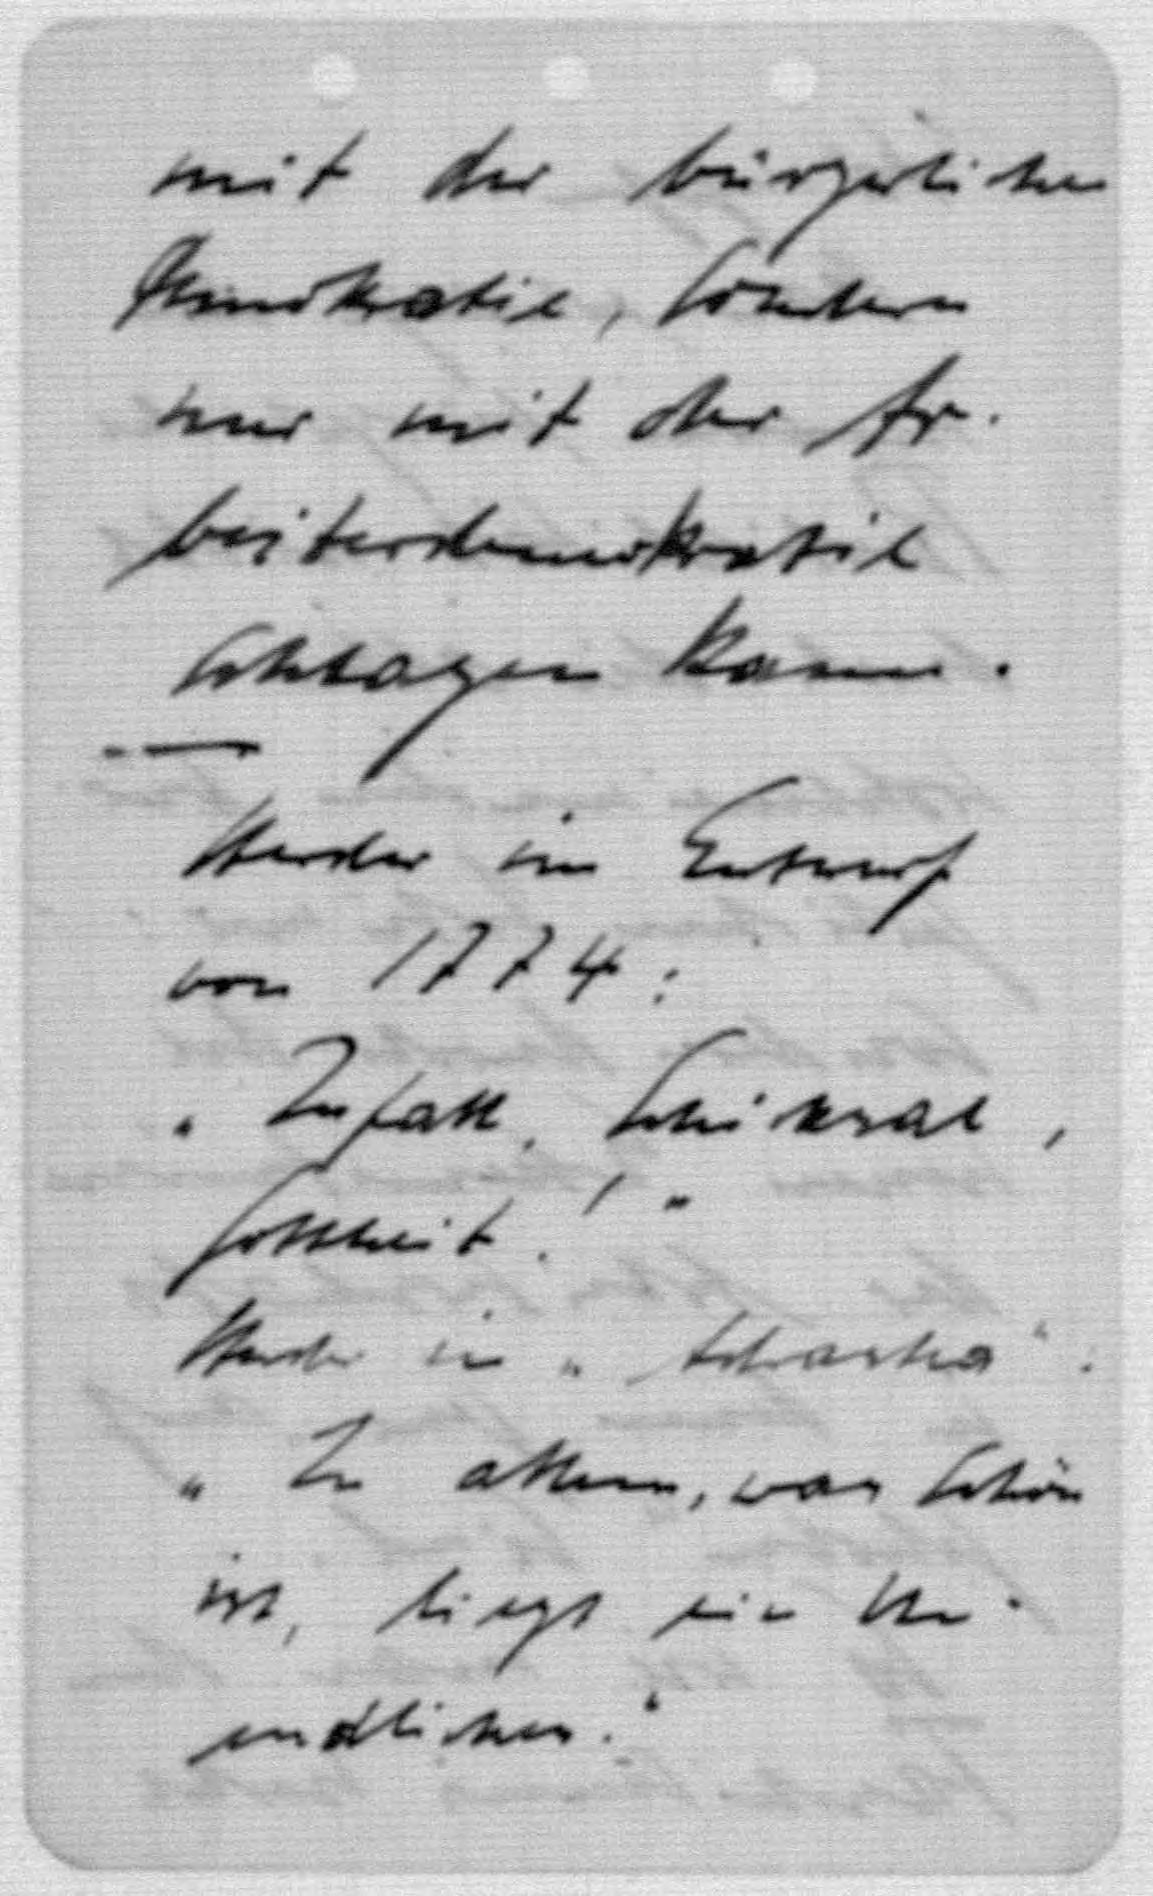 mit der bürgerlichen
Demokratie, sondern
nur mit der Ar-
beiterdemokratie
schlagen kann.
—
Herder im Entwurf
von 1774:
„Zufall, Schiksal,
Gottheit!“
Herder in „Adrastea“:
„In allem, was schön
ist, liegt ein Un-
endliches.“